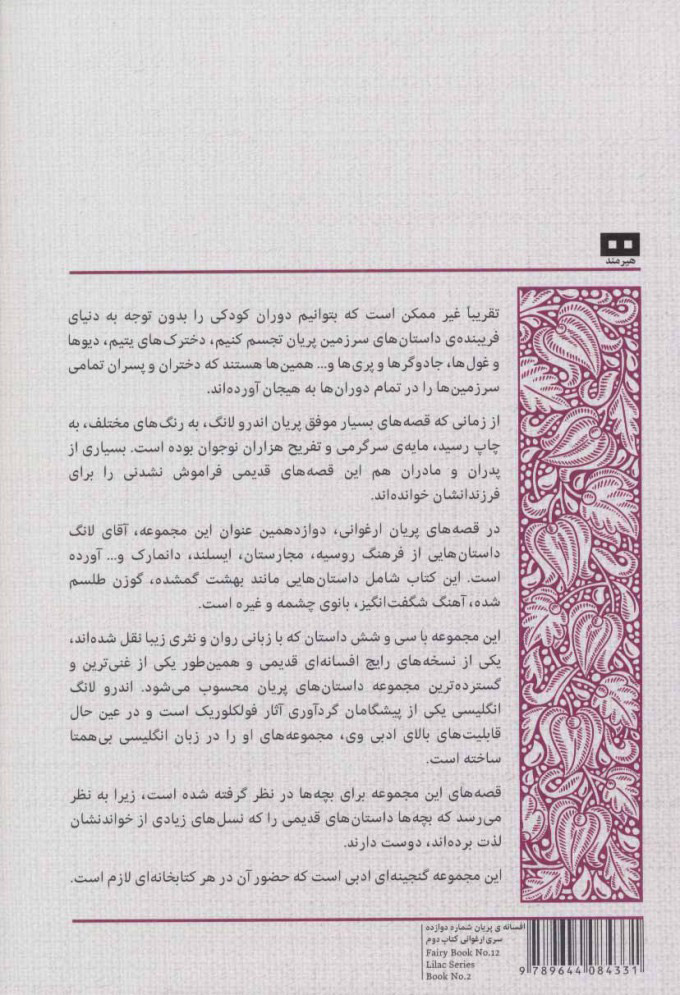 هیرمند
تقریباً غیر ممکن است که بتوانیم دوران کودکی را بدون توجه به دنیای
فریبنده‌ی داستان‌های سرزمین پریان تجسم کنیم، دخترک‌های یتیم، دیوها
و غول‌ها، جادوگرها و پری‌ها و... همین‌ها هستند که دختران و پسران تمامی
سرزمین‌ها را در تمام دوران‌ها به هیجان آورده‌اند.
از زمانی که قصه‌های بسیار موفق پریان اندرو لانگ، به رنگ‌های مختلف، به
چاپ رسید، مایه‌ی سرگرمی و تفریح هزاران نوجوان بوده است. بسیاری از
پدران و مادران هم این قصه‌های قدیمی فراموش نشدنی را برای
فرزندانشان خوانده‌اند.
در قصه‌های پریان ارغوانی، دوازدهمین عنوان این مجموعه، آقای لانگ
داستان‌هایی از فرهنگ روسیه، مجارستان، ایسلند، دانمارک و... آورده
است. این کتاب شامل داستان‌هایی مانند بهشت گمشده، گوزن طلسم
شده، آهنگ شگفت‌انگیز، بانوی چشمه و غیره است.
این مجموعه با سی و شش داستان که با زبانی روان و نثری زیبا نقل شده‌اند،
یکی از نسخه‌های رایج افسانه‌ای قدیمی و همین‌طور یکی از غنی‌ترین و
گسترده‌ترین مجموعه داستان‌های پریان محسوب می‌شود. اندرو لانگ
انگلیسی یکی از پیشگامان گردآوری آثار فولکلوریک است و در عین حال
قابلیت‌های بالای ادبی وی، مجموعه‌های او را در زبان انگلیسی بی‌همتا
ساخته است.
قصه‌های این مجموعه برای بچه‌ها در نظر گرفته شده است، زیرا به نظر
می‌رسد که بچه‌ها داستان‌های قدیمی را که نسل‌های زیادی از خواندنشان
لذت برده‌اند، دوست دارند.
این مجموعه گنجینه‌ای ادبی است که حضور آن در هر کتابخانه‌ای لازم است.
افسانه ی پریان شماره دوازده
سری ارغوانی کتاب دوم
Fairy Book No.12
Lilac Series
Book No.2
9 789644 084331